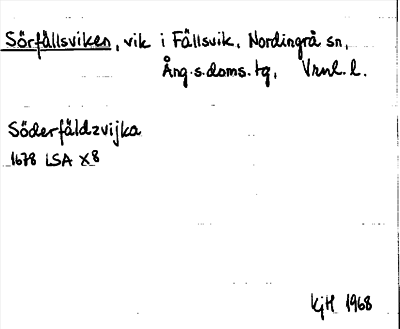 Sörfällsviken, vik i Fällsvik, Nordingrå sn,
Ång.s.doms.tg, Vrnl. l.
Söderfäldzvijka
1678 LSA X8
KjH 1968